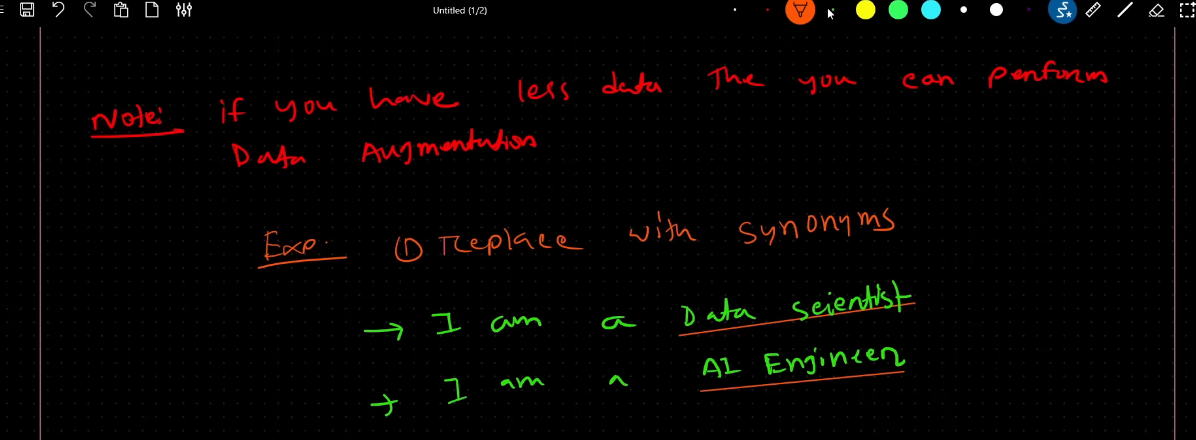 Untitled (1/2)
Note: if you have less data The you can perform
Data Augmentation
Exp. ① Replace with synonyms
→ I am a Data Scientist
→ I am a AI Engineer